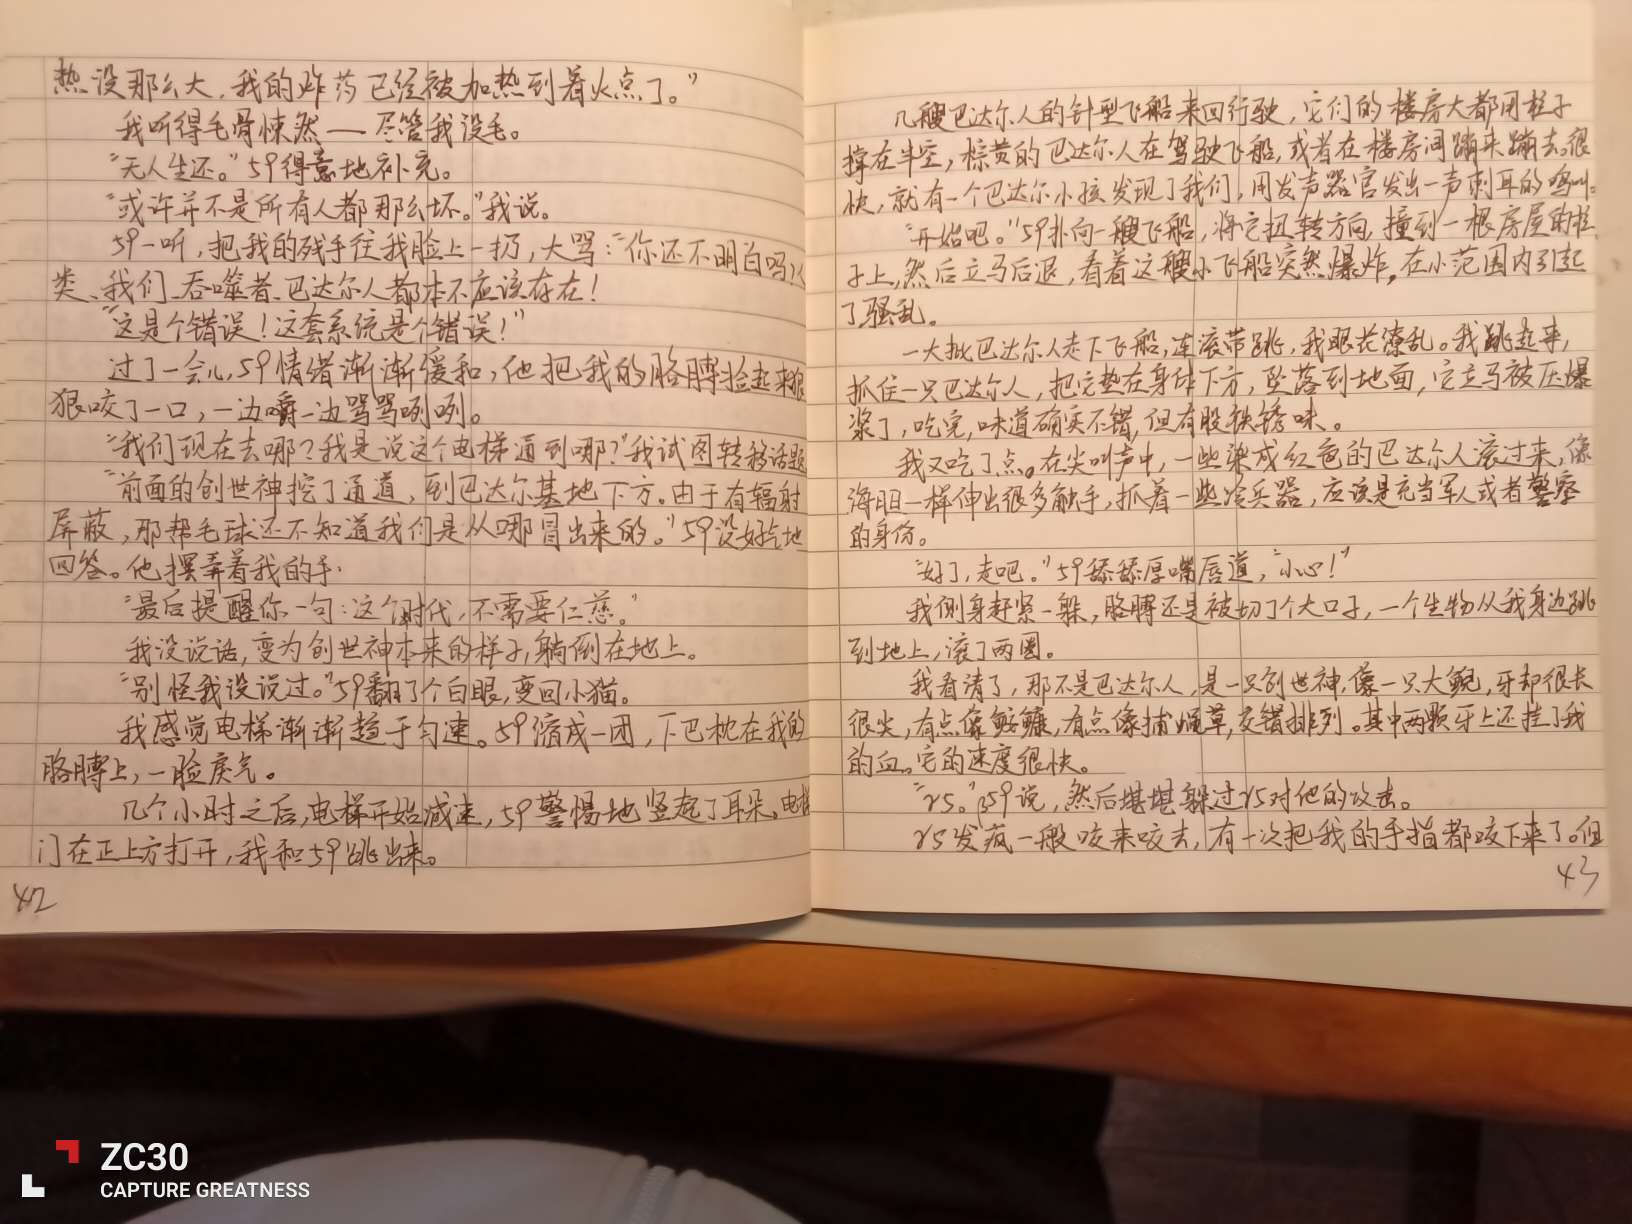 热没那么大,我的炸药已经被加热到着火点了。”
我听得毛骨悚然——尽管我没毛。
“无人生还。”59得意地补充。
“或许并不是所有人都那么坏。”我说。
59一听,把我的残手往我脸上一扔,大骂:“你还不明白吗?人
类、我们、吞噬者、巴达尔人都本不应该存在!
“这是个错误!这套系统是个错误!”
过了一会儿,59情绪渐渐缓和,他把我的胳膊捡起来狠
狠咬了一口,一边嚼一边骂骂咧咧。
“我们现在去哪?我是说这个电梯通到哪?”我试图转移话题
“前面的创世神挖了通道,到巴达尔基地下方。由于有辐射
屏蔽,那帮毛球还不知道我们是从哪冒出来的。”59没好气地
回答。他摆弄着我的手.
“最后提醒你一句:这个时代,不需要仁慈。”
我没说话,变为创世神本来的样子,躺倒在地上。
“别怪我没说过。”59翻了个白眼,变回小猫。
我感觉电梯渐渐趋于匀速。59缩成一团,下巴枕在我的
胳膊上,一脸戾气。
几个小时之后,电梯开始减速,59警惕地竖起了耳朵。电梯
门在正上方打开,我和59跳出来。
42
几艘巴达尔人的针型飞船来回行驶,它们的楼房大都用柱子
撑在半空,棕黄的巴达尔人在驾驶飞船,或者在楼房间蹦来蹦去。很
快,就有一个巴达尔小孩发现了我们,用发声器官发出一声刺耳的鸣叫。
“开始吧。”59扑向一艘飞船,将它扭转方向,撞到一根房屋的柱
子上,然后立马后退,看着这艘小飞船突然爆炸,在小范围内引起
了骚乱。
一大批巴达尔人走下飞船,连滚带跳,我眼花缭乱。我跳起来,
抓住一只巴达尔人,把它垫在身体下方,坠落到地面,它立马被压爆
浆了,吃完,味道确实不错,但有股铁锈味。
我又吃了点。在尖叫声中,一些染成红色的巴达尔人滚过来,像
海胆一样伸出很多触手,抓着一些冷兵器,应该是充当军人或者警察
的身份。
“好了,走吧。”59舔舔厚嘴唇道,“小心!”
我侧身赶紧一躲,胳膊还是被切了个大口子,一个生物从我身边跳
到地上,滚了两圈。
我看清了,那不是巴达尔人,是一只创世神,像一只大鲵,牙却很长
很尖,有点像鮟鱇,有点像捕蝇草,交错排列。其中两颗牙上还挂了我
的血。它的速度很快。
“γ5。”59说,然后堪堪躲过γ5对他的攻击。
γ5发疯一般咬来咬去,有一次把我的手指都咬下来了。但
43
ZC30
CAPTURE GREATNESS